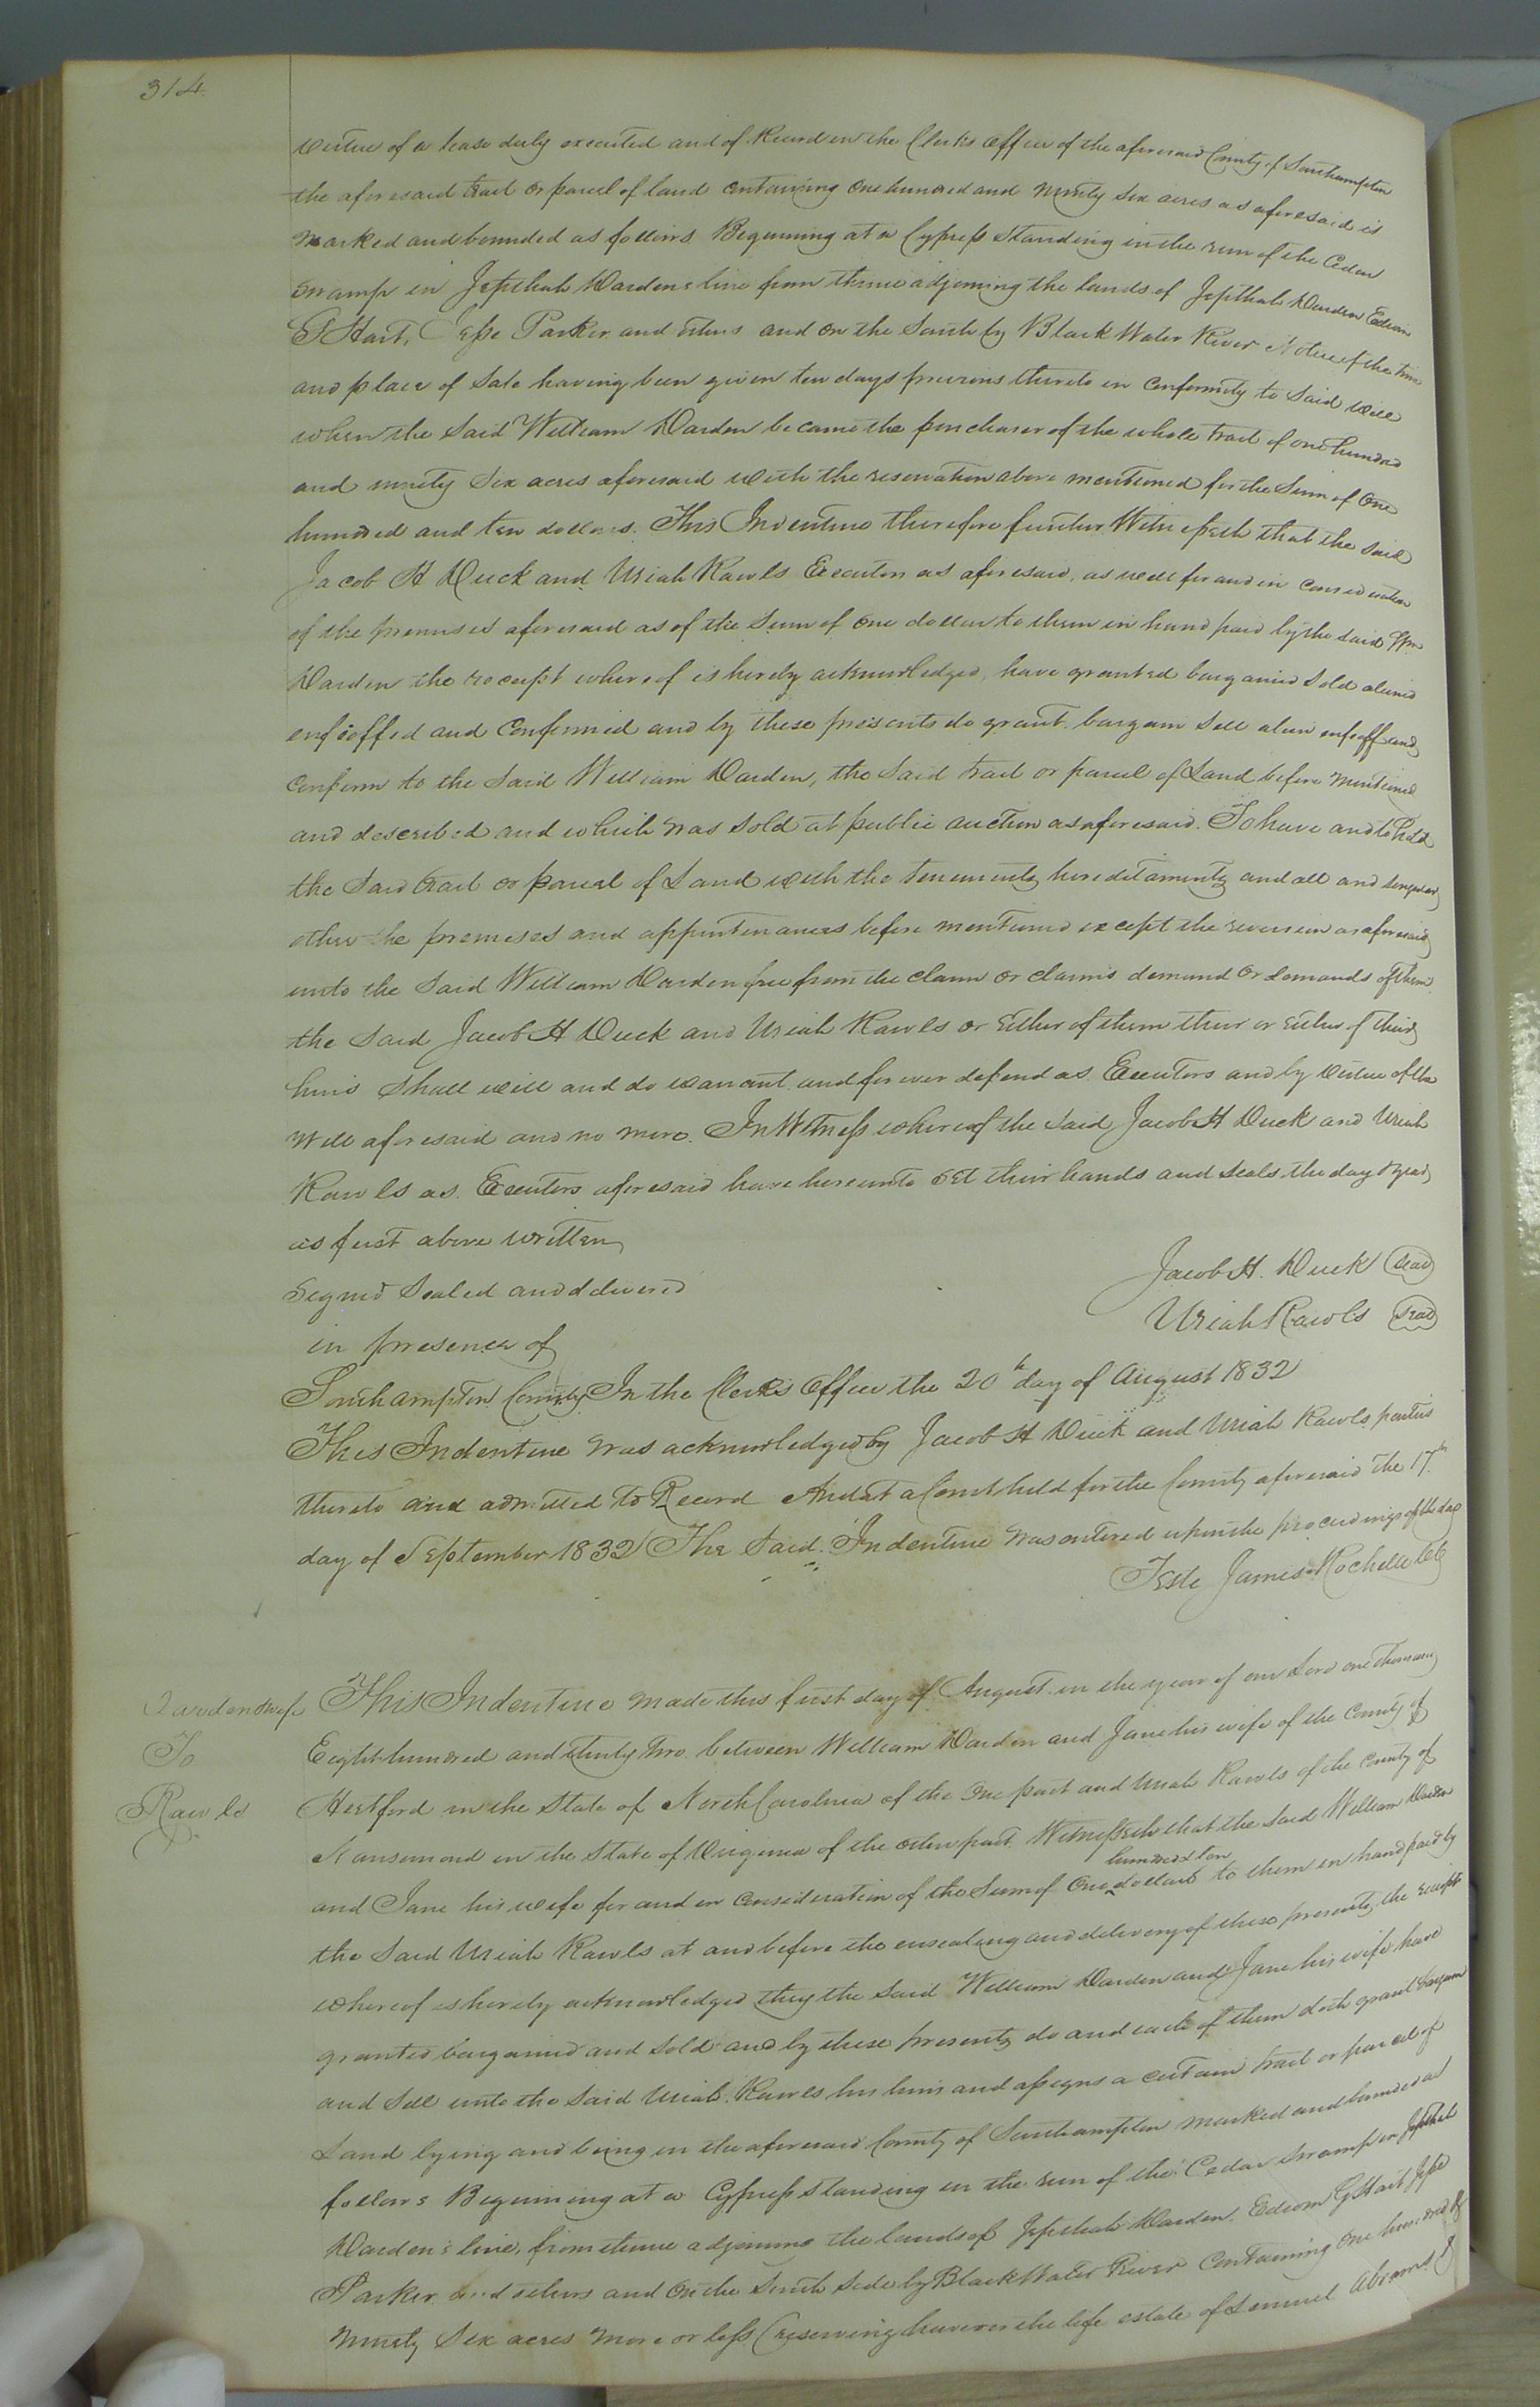 314.
virtue of a lease duly executed and of Record in the Clerks office of the aforesaid County of Southampton
the aforesaid tract or parcel of land containing one hundred and ninety six acres as aforesaid is
marked and bounded as follows. Beginning at a Cypress standing in the run of the Cedar
swamp in Jepthah Dardens line from thence adjoining the lands of Jepthah Darden Edwin
G Hart, Jesse Parker and others and on the South by Black Water River Notice of the time
and place of Sale having been given ten days previous thereto in conformity to Said will
when the Said William Darden became the purchaser of the whole tract of one hundred
and ninety Six acres aforesaid with the reservation above mentioned for the Sum of One
hundred and ten dollars. This Indenture therefore further Witnesseth that the said
Jacob H Duck and Uriah Rawls Executors as aforesaid, as well for and in consideration
of the premises aforesaid as of the Sum of one dollar to them in hand paid by the said Wm
Darden the receipt whereof is hereby acknowledged, have granted bargained Sold aliened
enfeoffed and Confirmed and by these presents do grant bargain Sell alien enfeoff and
confirm to the Said William Darden, the Said tract or parcel of Land before mentioned
and described and which was Sold at public auction as aforesaid. To have and to hold
the Said tract or parcel of Land with the tenements hereditaments and all and singular
other the premises and appurtenances before mentioned except the reversion as aforesaid
unto the Said William Darden free from the claim or claims demand or demands of them
the Said Jacob H Duck and Uriah Rawls or Either of them their or Either of their
heirs Shall will and do warrant and forever defend as Executors and by virtue of the
Will aforesaid and no more. In Witness whereof the Said Jacob H Duck and Uriah
Rawls as Executors aforesaid have hereunto set their hands and Seals the day & year
as first above written
Signed Sealed and delivered
Jacob H. Duck Seal
in presence of
Uriah Rawls Seal
Southampton County In the Clerks Office the 20th day of August 1832
This Indenture was acknowledged by Jacob H Duck and Uriah Rawls parties
thereto and admitted to Record And at a Court held for the County aforesaid The 17th
day of September 1832 The Said Indenture was entered upon the proceedings of the day
Teste James Rochelle
Darden & wife
To
Rawls
This Indenture made this first day of August in the year of our Lord one thousand
Eight hundred and thirty two. between William Darden and Jane his wife of the County of
Hertford in the State of North Carolina of the one part and Uriah Rawls of the County of
Nansemond in the State of Virginia of the other part. Witnesseth that the Said William Darden
and Jane his wife for and in consideration of the Sum of One hundred & ten dollars to them in hand paid by
the Said Uriah Rawls at and before the ensealing and delivery of these presents, the receipt
whereof is hereby acknowledged they the Said William Darden and Jane his wife have
granted bargained and Sold and by these presents do and each of them doth grant bargain
and Sell unto the Said Uriah Rawls his heirs and assigns a certain tract or parcel of
Land lying and being in the aforesaid County of Southampton marked and bounded as
follows Beginning at a Cypress standing in the run of the Cedar Swamp in Jepthah
Darden's line, from thence adjoining the lands of Jepthah Darden. Edwin G Hart Jesse
Parker and others and On the South Side by Black Water River Containing One hundred &
Ninety Six acres more or less (reserving however the life estate of Lemuel Abrams